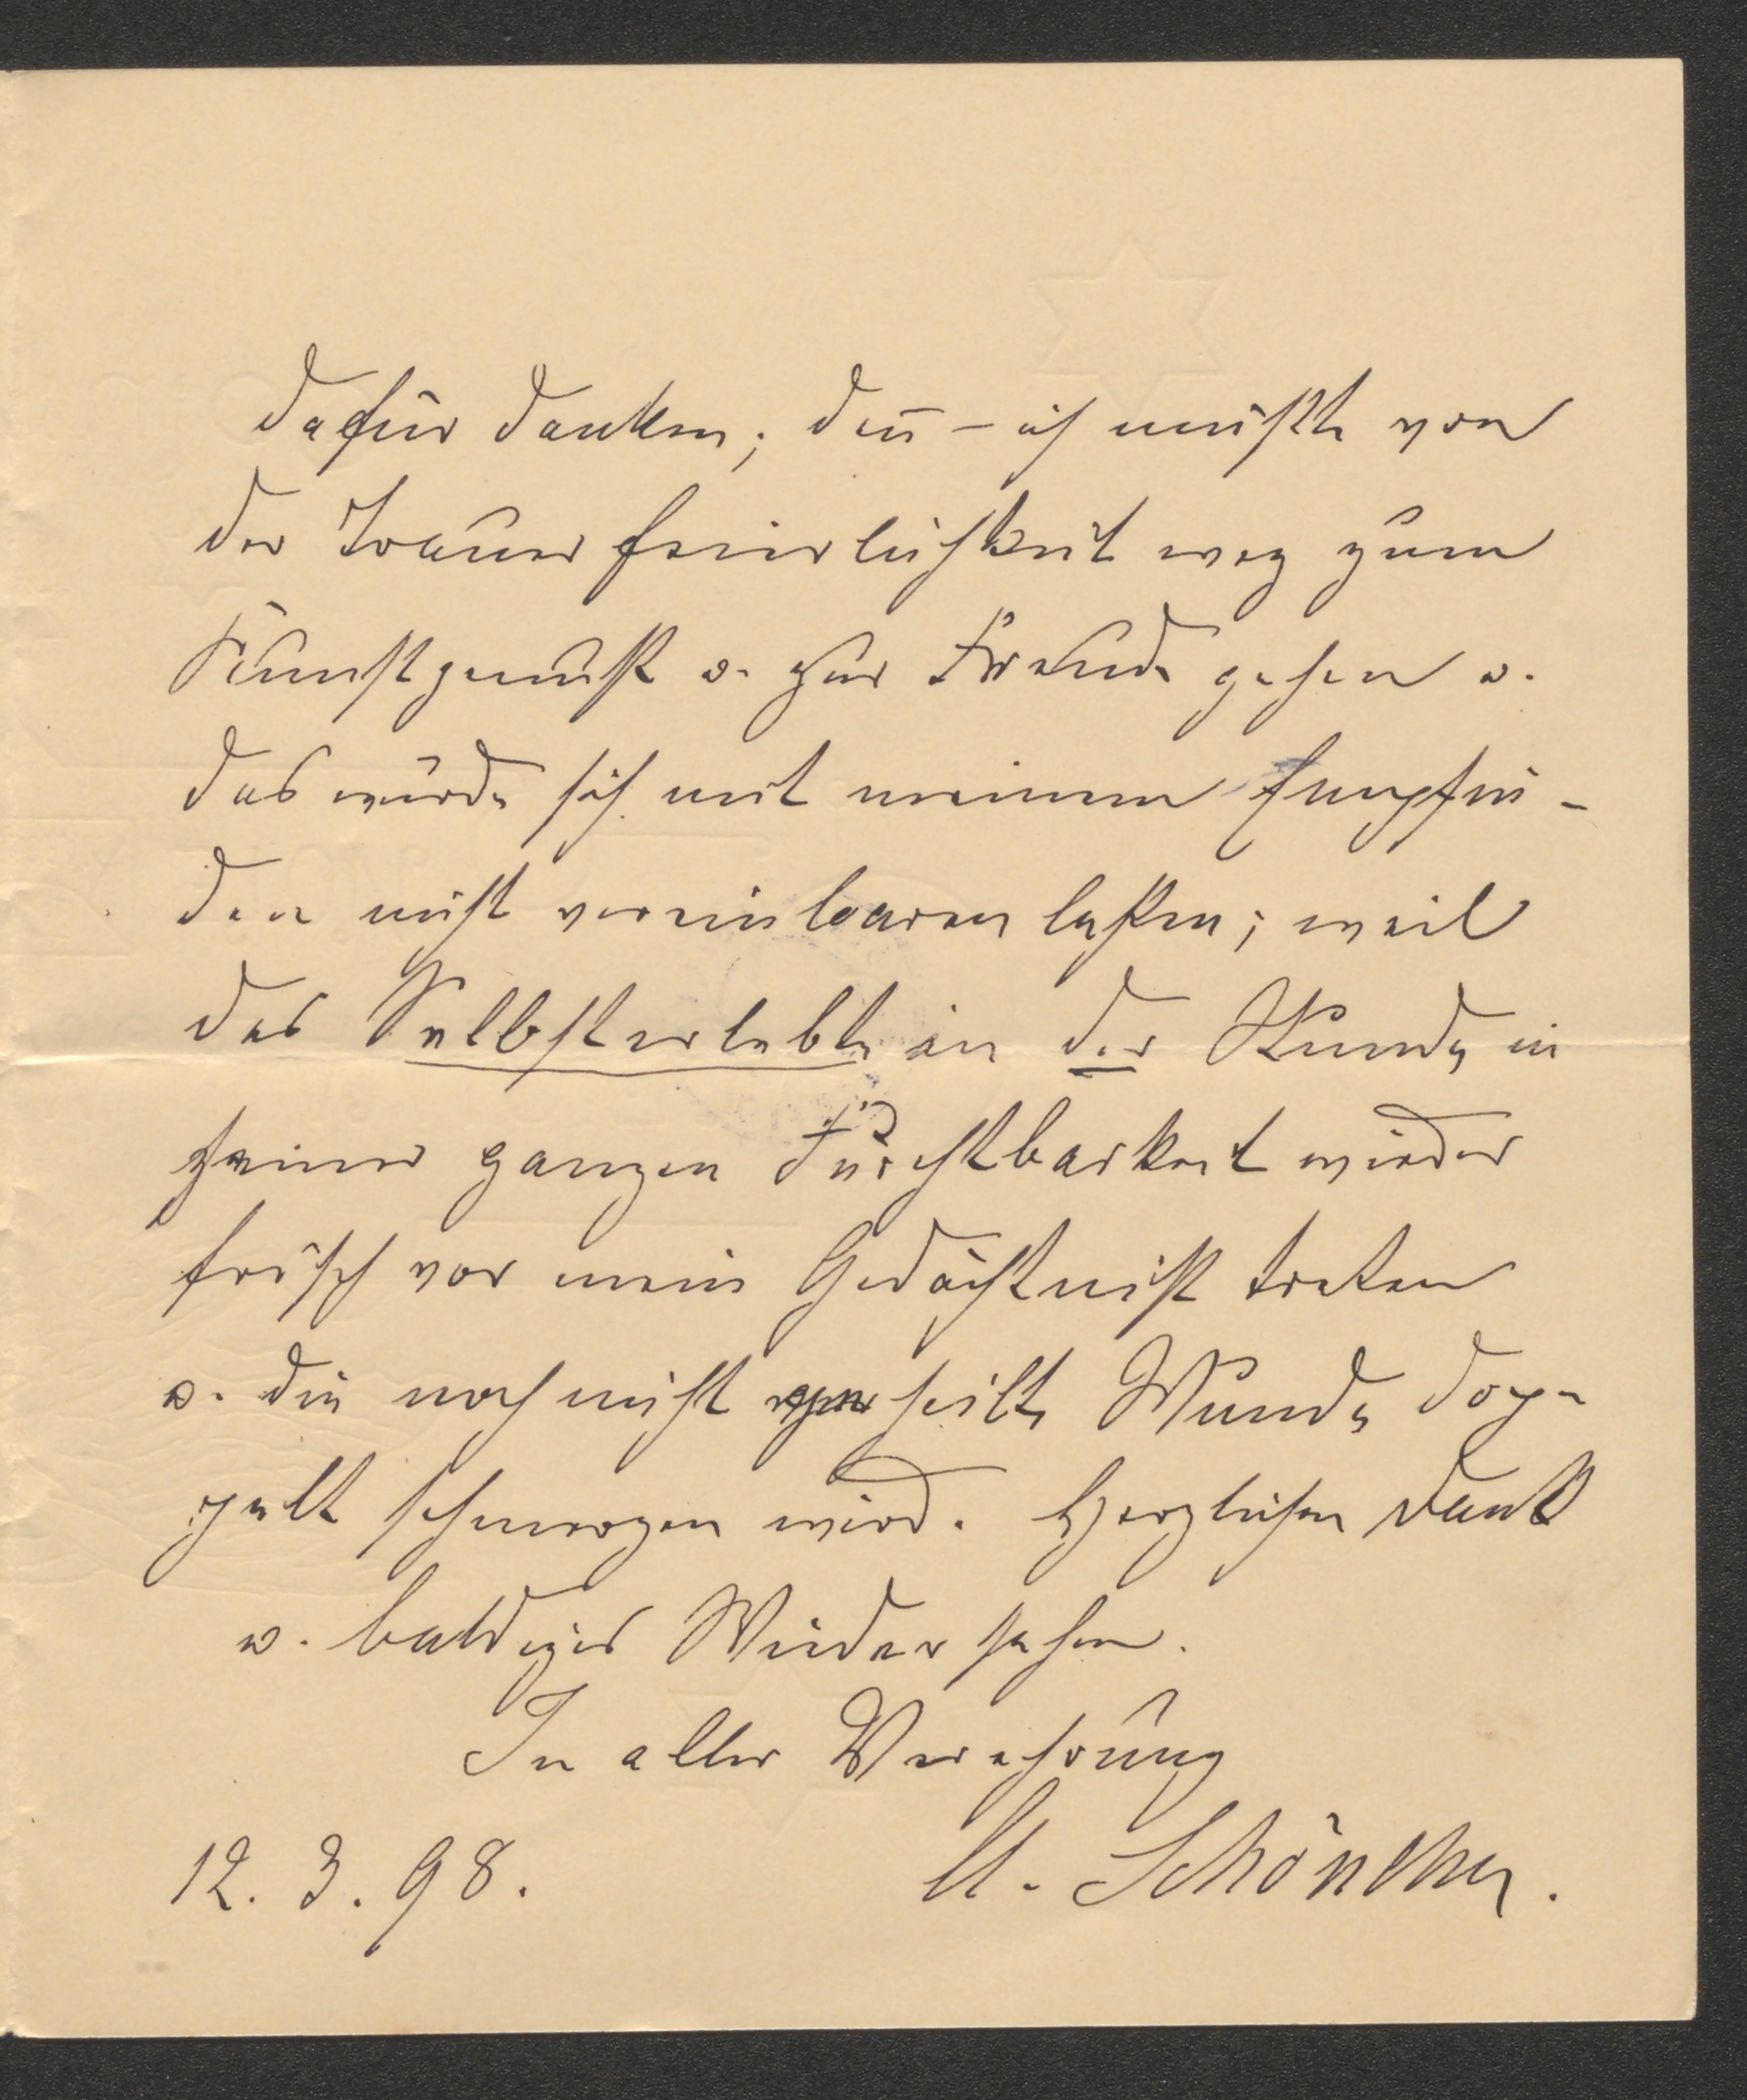 dafür danken; deñ – ich müßte von
der Trauerfeierlichkeit weg zum
Kunstgenuß u. zur Freude gehen u.
das würde sich mit meinem Empfin-
den nicht vereinbaren laßen; weil
das Selbsterlebte in der Stunde in
seiner ganzen Furchtbarkeit wieder
frisch vor mein Gedächtniß treten
u. die noch nicht verheilte Wunde dop-
pelt schmerzen wird. Herzlichen Dank
u. baldiges Wiedersehen.
In aller Verehrung
12. 3. 98. Schönchen.